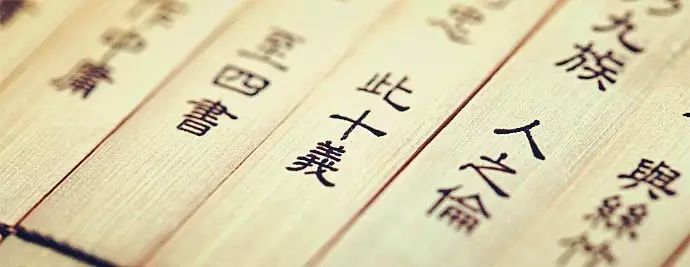 與絲竹
乃九族
人之倫
此十義
至四書
作中庸